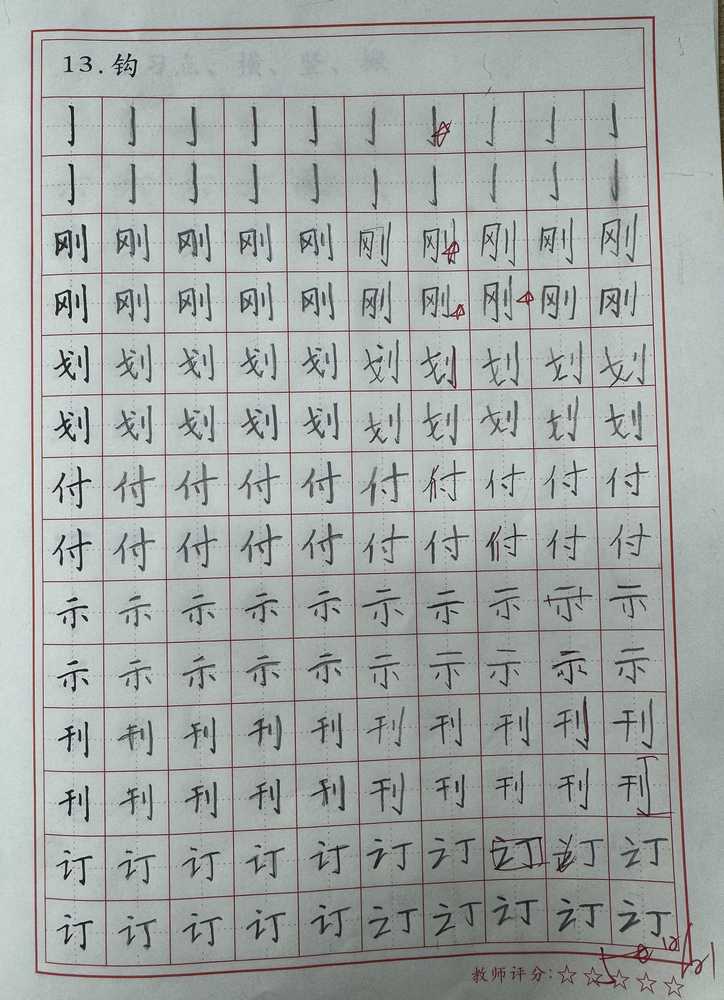 13.钩
亅亅亅亅亅亅亅亅亅亅
亅亅亅亅亅亅亅亅亅亅
刚刚刚刚刚刚刚刚刚刚
刚刚刚刚刚刚刚刚刚刚
划划划划划划划划划划
划划划划划划划划划划
付付付付付付付付付付
付付付付付付付付付付
示示示示示示示示示示
示示示示示示示示示示
刊刊刊刊刊刊刊刊刊刊
刊刊刊刊刊刊刊刊刊刊
订订订订订订订订订订
订订订订订订订订订订
教师评分:☆☆☆☆☆